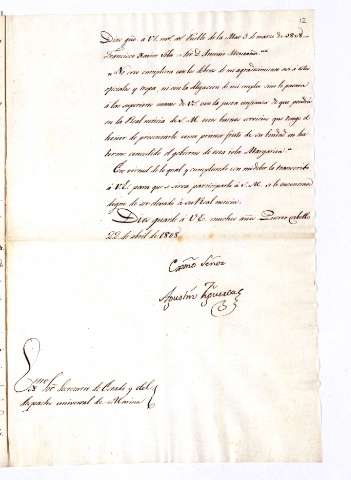 12
Dios gũe. a V.E. m.s a.s Pueblo de la Mar 3 de marzo de 1808.
Francisco Xavier
No creo cumpliria con los deberes de mi agradecimiento a estos
oficiales y tropa, ni con la obligacion de mi empleo sino lo pusiera
a las superiores manos de V.E. con la justa confianza de que pondrá
en la Real noticia de S. M. son buenos servicios que tengo el
honor de presentarle como primer fruto de su bondad en ha-
berme concedido el gobierno de esta isla Margarita
Con normal de lo qual y cumpliendo con mi deber lo transcribo
a V.E. para que se sirva participarlo a S. M. si lo encontrase
digno de ser elevado à su Real noticia.
Dios guarde à V.E. muchos años Puerto Cabello
22 de abril de 1808.
Exmõ. Señor
Agustin Figueroa
Exmo.
S.or Secretario de Estado y del
despacho universal de Marina